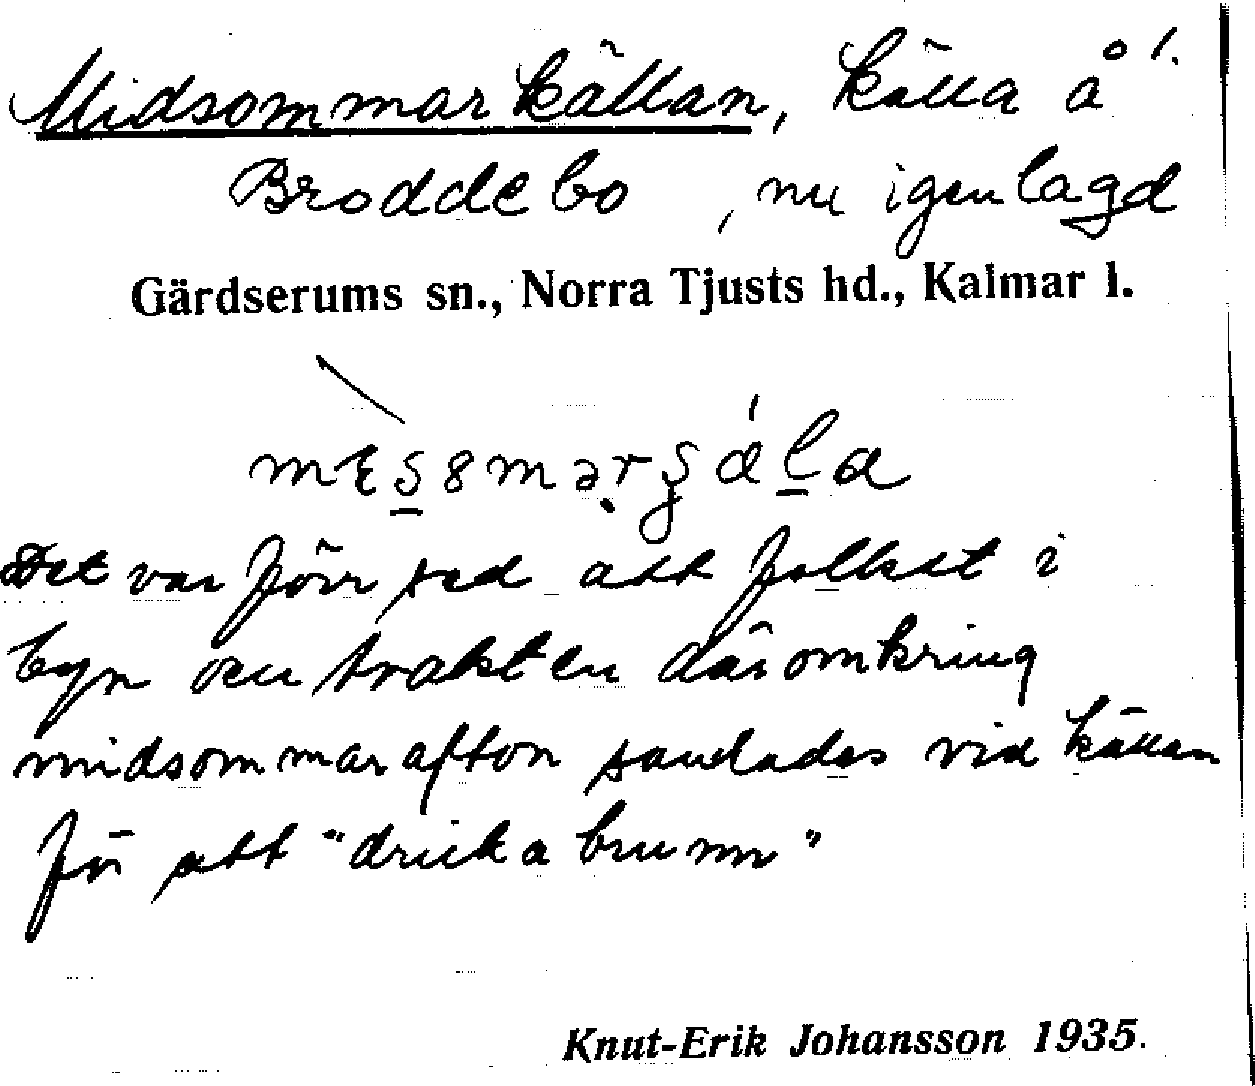 Midsommarkällan, källa å
Broddebo, nu igenlagd
Gärdserums sn., Norra Tjusts hd., Kalmar l.
Det var förr sed att folket i
byn och trakten däromkring
midsommarafton samlades vid källan
för att "dricka brunn"
Knut-Erik Johansson 1935.